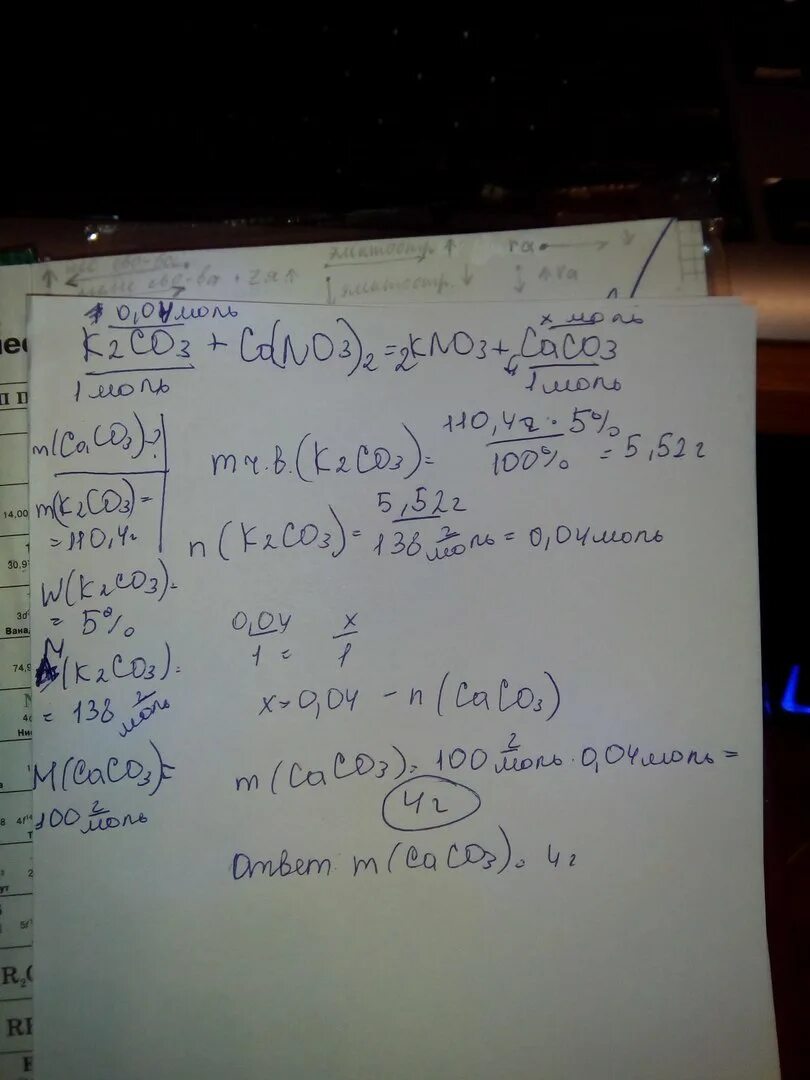 0,04 моль x моль
K2CO3 + Ca(NO3)2 = 2KNO3 + ↓CaCO3
1 моль 1 моль
m(CaCO3)-?
m(K2CO3)=
=110,4г
W(K2CO3)=
= 5%
M(K2CO3)=
= 138 г/моль
M(CaCO3)=
100 г/моль
m ч.в. (K2CO3)= 110,4г · 5% / 100% = 5,52 г
n (K2CO3)= 5,52г / 138 г/моль = 0,04 моль
0,04/1 = x/1
x=0,04 - n (CaCO3)
m (CaCO3)= 100 г/моль · 0,04 моль =
4г
Ответ m (CaCO3)= 4г
14,00
30,9
Вана
74,9